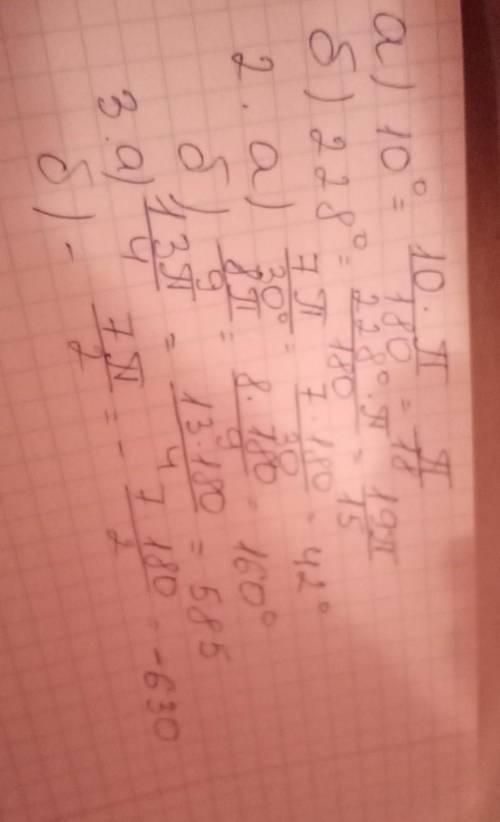 а) 10° = 10·π/180 = π/18
б) 228° = 228°·π/180 = 19π/15
2. а) 7π/30° = 7·180/30 = 42°
б) 8π/9 = 8·180/9 = 160°
3. а) 13π/4 = 13·180/4 = 585
б) - 7π/2 = - 7·180/2 = -630